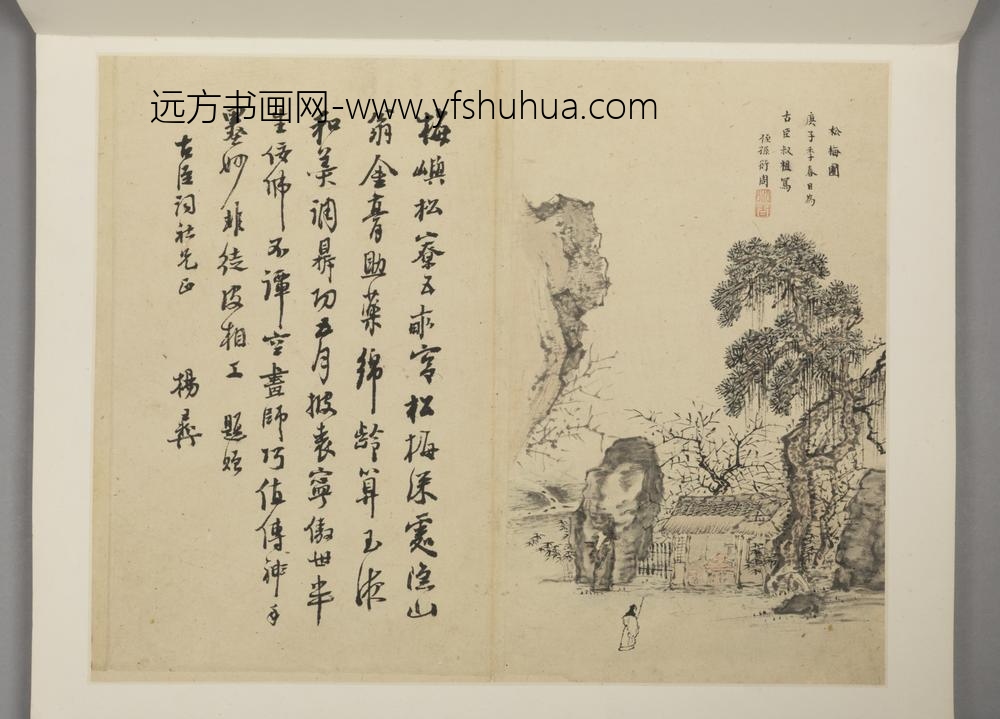 远方书画网-www.yfshuhua.com
松梅圖
庚子季春日為
古臣叔祖寫
侄孫衍周
梅嶼松寮五畝宮松梅深處隱山
翁金膏助藥綿齡算玉液
和羹調鼎功五月披裘寧傲世半
生佞佛不譚空畫師巧值傳神手
墨妙非徒皮相工 題贈
古臣詞社兄正
楊彝